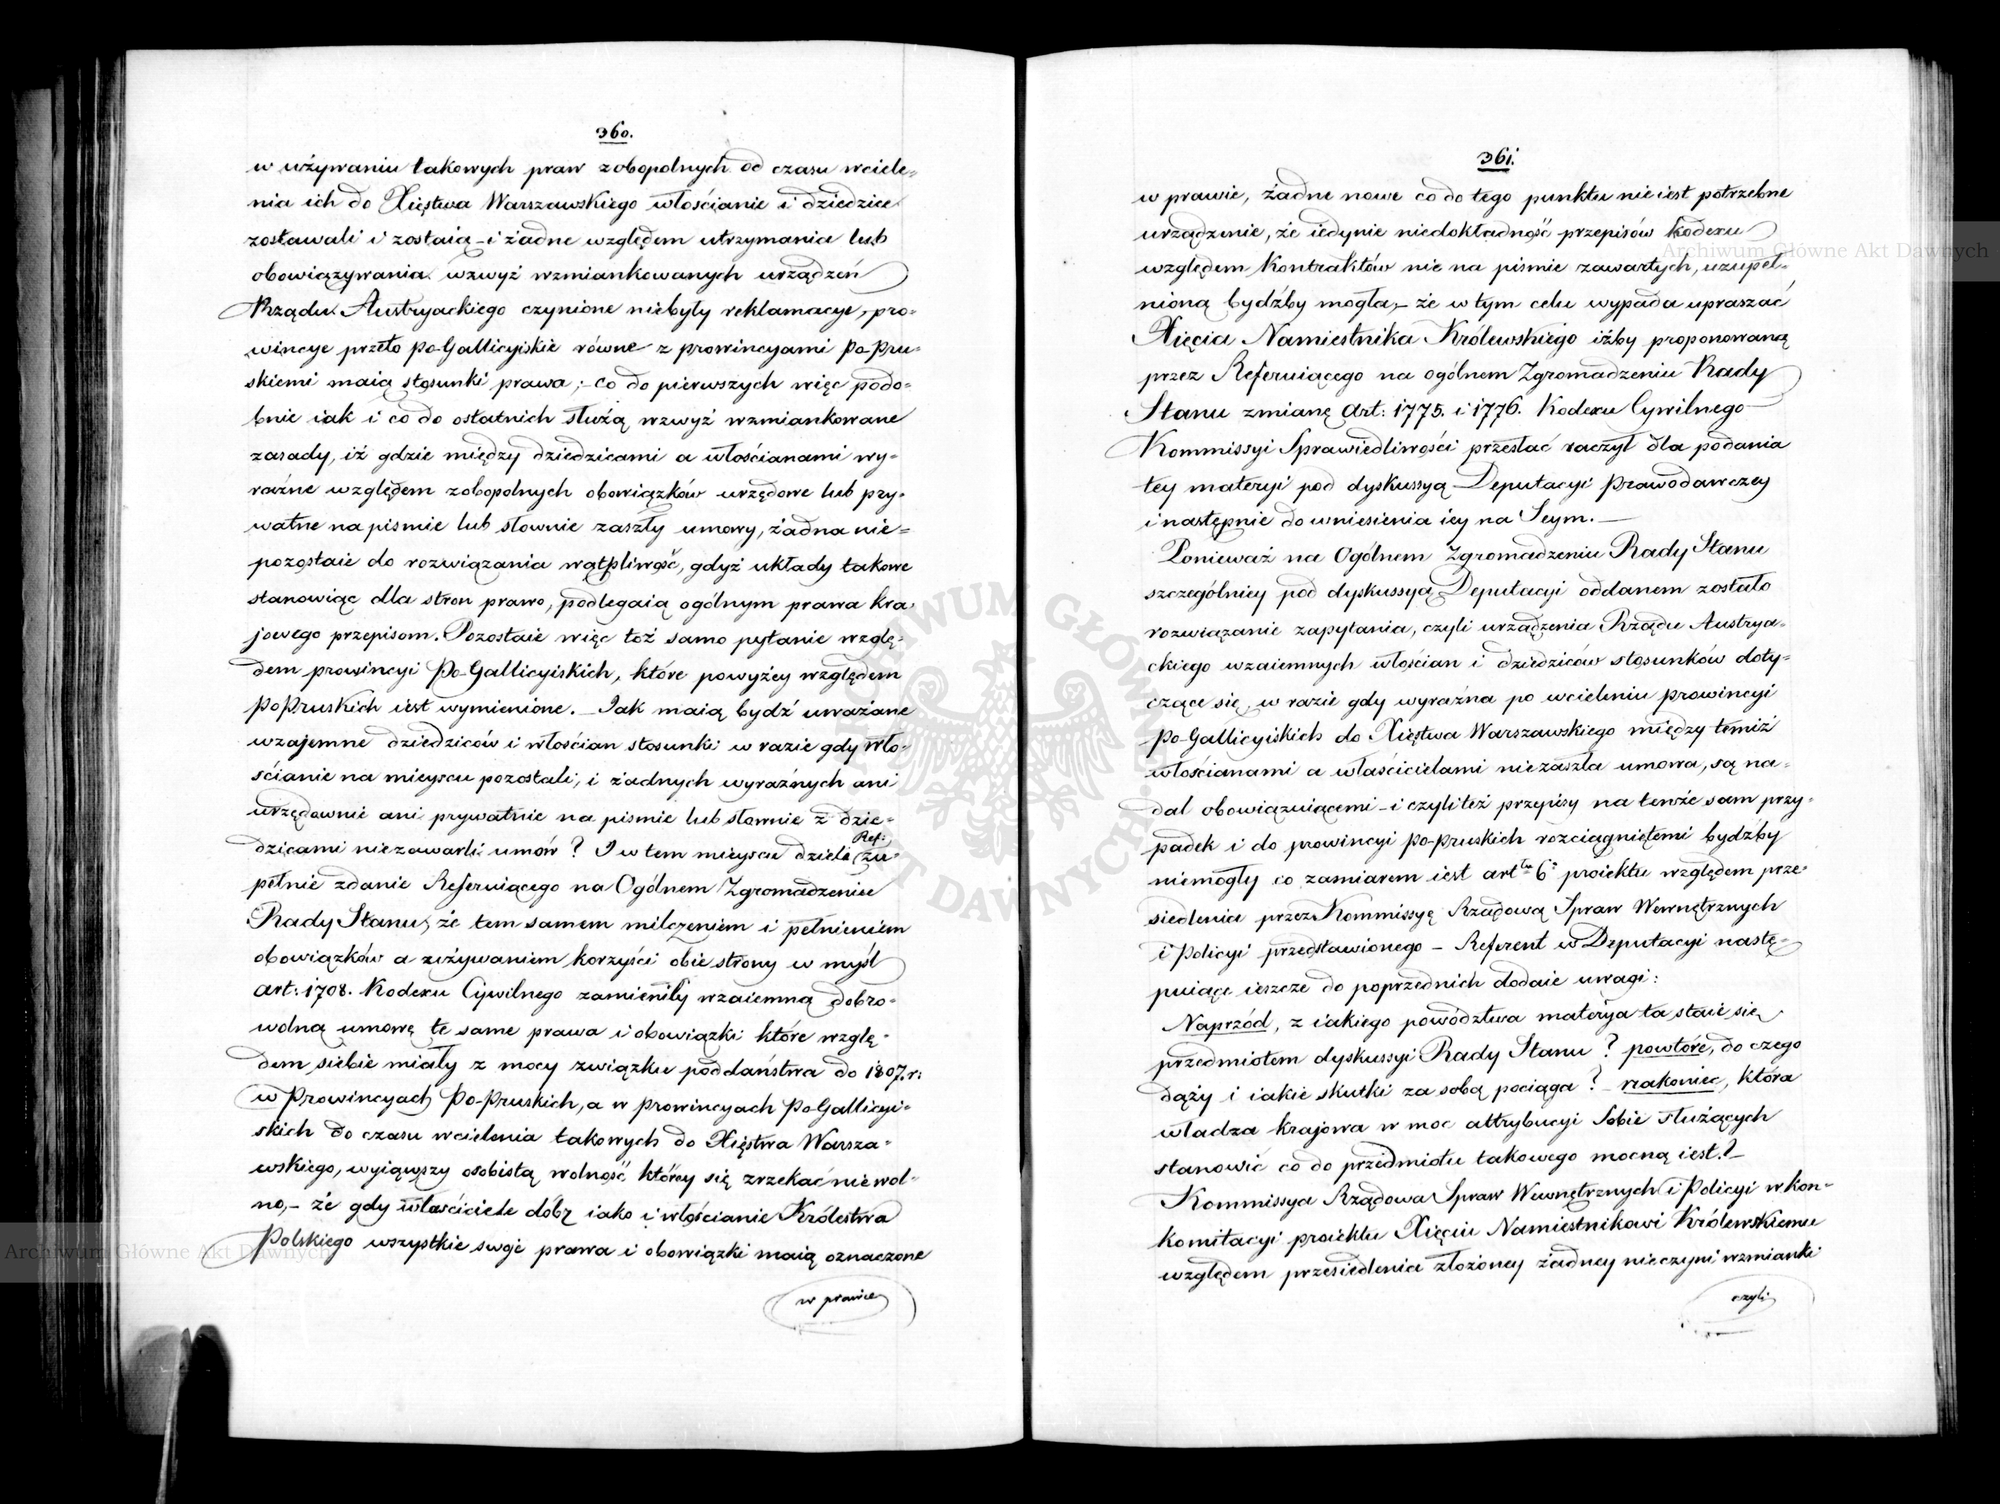 360.
w używaniu takowych praw zobopolnych od czasu wciele-
nia ich do Xięstwa Warszawskiego włościanie i dziedzice
zostawali i zostaią – i żadne względem utrzymania lub
obowiązywania wzwyż wzmiankowanych urządzeń
Rządu Austryackiego czynione niebyły reklamacye, pro-
wincye przeto po-Gallicyiskie równe z prowincyami po-pru-
skiemi maią stosunki prawa; – co do pierwszych więc podo-
bnie iak i co do ostatnich służą wzwyż wzmiankowane
zasady, iż gdzie między dziedzicami a włościanami wy-
raźne względem zobopolnych obowiązków urzędowe lub pry-
watne na pismie lub słownie zaszły umowy, żadna nie-
pozostaie do rozwiązania wątpliwość, gdyż układy takowe
stanowiąc dla stron prawo, podlegaią ogólnym prawa kra-
jowego przepisom. Pozostaie więc toż samo pytanie wzglę-
dem prowincyi Po-Gallicyiskich, które powyżey względem
po pruskich iest wymienione. – Jak maią bydź uważane
wzajemne dziedziców i włościan stosunki w razie gdy wło-
ścianie na mieyscu pozostali, i żadnych wyraźnych ani
urzędownie ani prywatnie na pismie lub słownie z dzie-
dzicami niezawarli umów? I w tem mieyscu dzieli Ref: zu-
pełnie zdanie Referuiącego na Ogólnem Zgromadzeniu
Rady Stanu, że tem samem milczeniem i pełnieniem
obowiązków a zużywaniem korzyści obie strony w myśl
art: 1708. Kodexu Cywilnego zamieniły wzaiemną dobro-
wolną umowę te same prawa i obowiązki które wzglę-
dem siebie miały z mocy związku poddaństwa do 1807. r:
w Prowincyach po-pruskich, a w prowincyach po-Gallicyi-
skich do czasu wcielenia takowych do Xięstwa Warsza-
wskiego, wyiąwszy osobistą wolność którey się zrzekać niewol-
no, – że gdy właściciele dóbr iako i włościanie Królestwa
Polskiego wszystkie swoje prawa i obowiązki maią oznaczone
w prawie
361.
w prawie, żadne nowe co do tego punktu nie iest potrzebne
urządzenie, że iedynie niedokładność przepisów kodexu
względem kontraktów nie na pismie zawartych, uzupeł-
nioną bydźby mogła, – że w tym celu wypada upraszać
Xięcia Namiestnika Królewskiego iżby proponowaną
przez Referuiącego na ogólnem Zgromadzeniu Rady
Stanu zmianę Art: 1775. i 1776. Kodexu Cywilnego –
Kommissyi Sprawiedliwości przesłać raczył dla podania
tey materyi pod dyskussyą Deputacyi Prawodawczey
i następnie do wniesienia iey na Seym. –
Ponieważ na Ogólnem Zgromadzeniu Rady Stanu
szczególniey pod dyskussyą Deputacyi oddanem zostało
rozwiązanie zapytania, czyli urządzenia Rządu Austrya-
ckiego wzaiemnych włościan i dziedziców stosunków doty-
czące się, w razie gdy wyraźna po wcieleniu prowincyi
po-Gallicyiskich do Xięstwa Warszawskiego między temiż
włościanami a właścicielami niezaszła umowa, są na-
dal obowiązuiącemi – i czyli też przepisy na tenże sam przy-
padek i do prowincyi po-pruskich rozciągniętemi bydźby
niemogły co zamiarem iest artłu 6o proiektu względem prze-
siedlenia przez Kommissyę Rządową Spraw Wewnętrznych
i Policyi przedstawionego – Referent w Deputacyi nastę-
puiące ieszcze do poprzednich dodaie uwagi:
Naprzód, z iakiego powództwa materya ta staie się
przedmiotem dyskussyi Rady Stanu? powtóre, do czego
dąży i iakie skutki za sobą pociąga? – nakoniec, która
władza krajowa w moc attrybucyi sobie służących
stanowić co do przedmiotu takowego mocną iest.? –
Kommissya Rządowa Spraw Wewnętrznych i Policyi w kon-
komitacyi proiektu Xięciu Namiestnikowi Królewskiemu
względem przesiedlenia złożoney żadney nieczyni wzmianki
czyli
Archiwum Główne Akt Dawnych
Archiwum Główne Akt Dawnych
ARCHIWUM GŁÓWNE AKT DAWNYCH